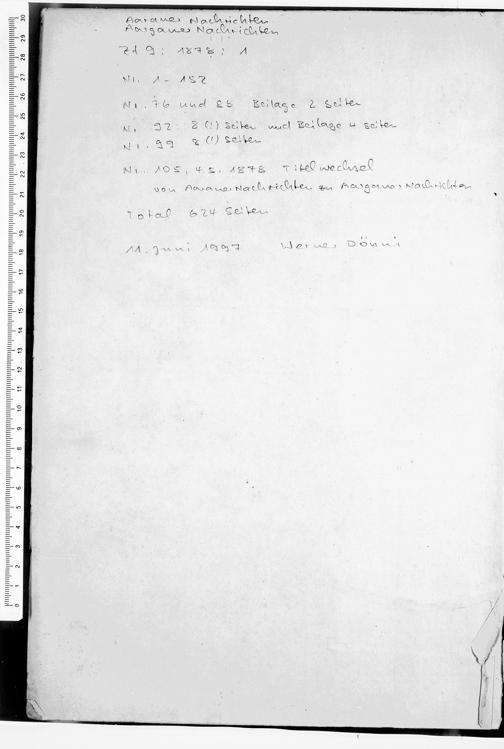 Aarauer Nachrichten
Aargauer Nachrichten
Ztg : 1878 : 1
Nr. 1 - 152
Nr. 76 und 85 Beilage 2 Seiten
Nr. 92 8 (!) Seiten und Beilage 4 Seiten
Nr. 99 8 (!) Seiten
Nr. 105, 4.5. 1878 Titelwechsel
von Aarauer Nachrichten zu Aargauer Nachrichten
Total 624 Seiten
11. Juni 1997 Werner Dönni
30
29
28
27
26
25
24
23
22
21
20
19
18
17
16
15
14
13
12
11
10
9
8
7
6
5
4
3
2
1
0